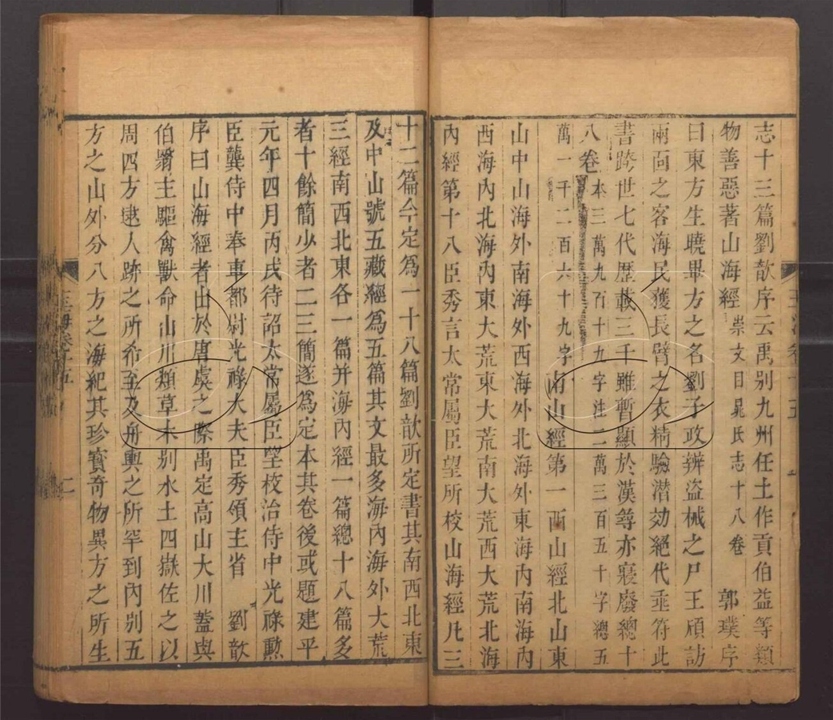 志十三篇劉歆序云禹别九州任土作貢伯益等類
物善惡著山海經崇文目晁氏志十八卷 郭璞序
曰東方生曉畢方之名劉子政辨盜械之尸王頎訪
兩面之客海民獲長臂之衣精驗潛効絕代乖符此
書跨世七代歷載三千雖暫顯於漢尋亦寢廢總十
八卷本三萬九百十九字注二萬三百五十字總五
萬一千二百六十九字南山經第一西山經北山東
山中山海外南海外西海外北海外東海内南海内
西海内北海内東大荒東大荒南大荒西大荒北海
内經第十八臣秀言太常屬臣望所校山海經凡三
十二篇今定為一十八篇劉歆所定書其南西北東
及中山號五藏經為五篇其文最多海内海外大荒
三經南西北東各一篇并海内經一篇總十八篇多
者十餘簡少者二三簡遂為定本其卷後或題建平
元年四月丙戌待詔太常屬臣望校治侍中光祿勲
臣龔侍中奉車都尉光祿大夫臣秀領主省 劉歆
序曰山海經者出於唐虞之際禹定高山大川蓋與
伯翳主驅禽獸命山川類草木别水土四嶽佐之以
周四方逮人跡之所希至及舟輿之所罕到内别五
方之山外分八方之海紀其珍寶奇物異方之所生
玉海卷十五
二